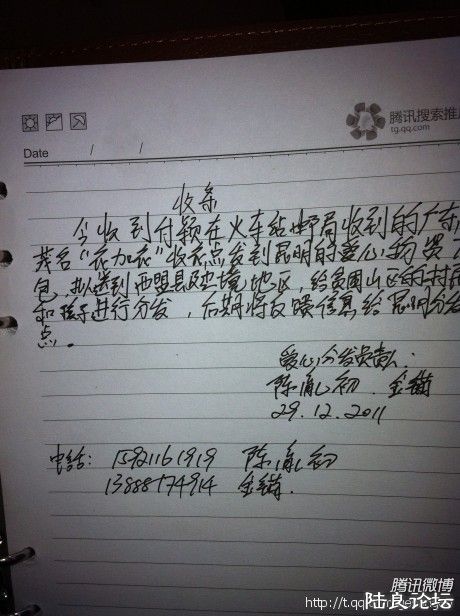 腾讯搜索推
tg.qq.com
Date / /
收条
今收到付颖在火车站邮局收到的广东
茂名“衣加衣”收衣点发到昆明的爱心物资
包,拟送到西盟县及边境地区,给贫困山区的村民
和孩子进行分发,后期将反馈信息给昆明分发
点。
爱心分发负责人:
陈胤初 金锚
29.12.2011
电话: 15921161919 陈胤初
13888174914 金锚.
腾讯微博
http://t.qq.com/
陆良论坛